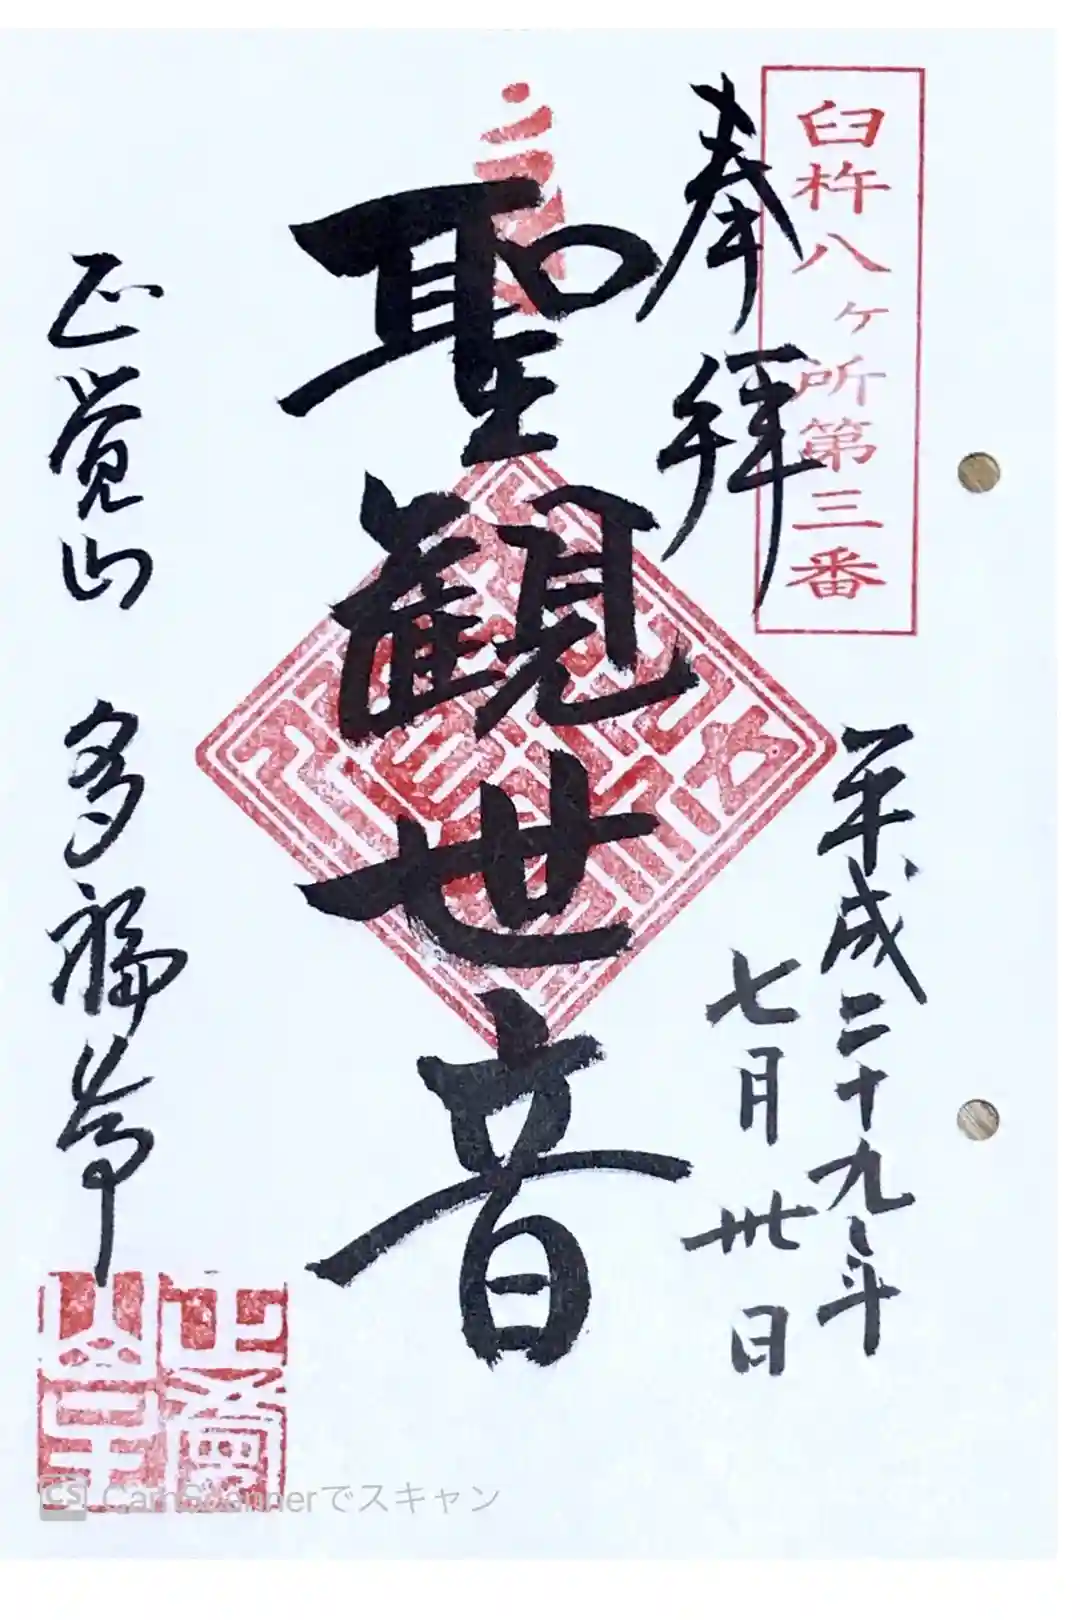 臼杵八ヶ所第三番
奉拝
平成二十九年
七月卅日
聖観世音
正覚山 多福寺
CamScannerでスキャン